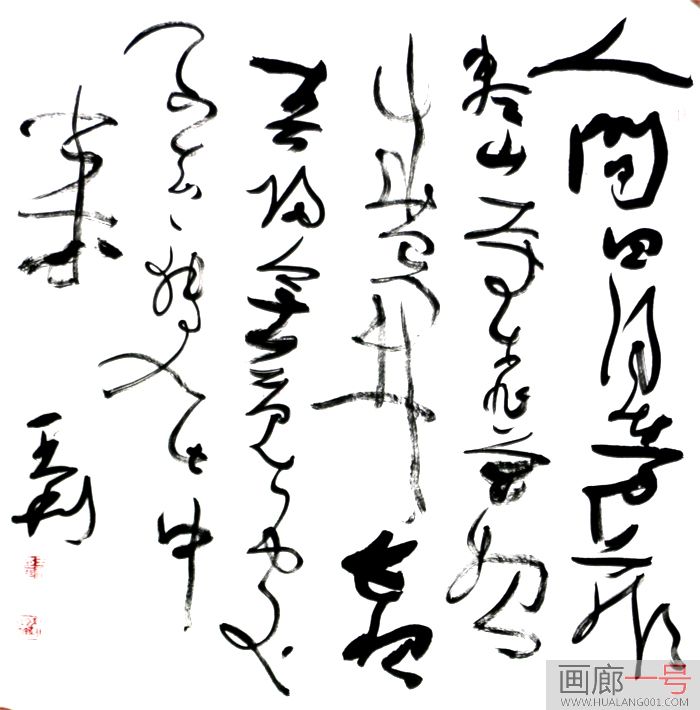 人間四月芳菲
盡山寺桃花始
盛開長恨
春歸無覓處
不知轉入此中
來
画廊一号
WWW.HUALANG001.COM